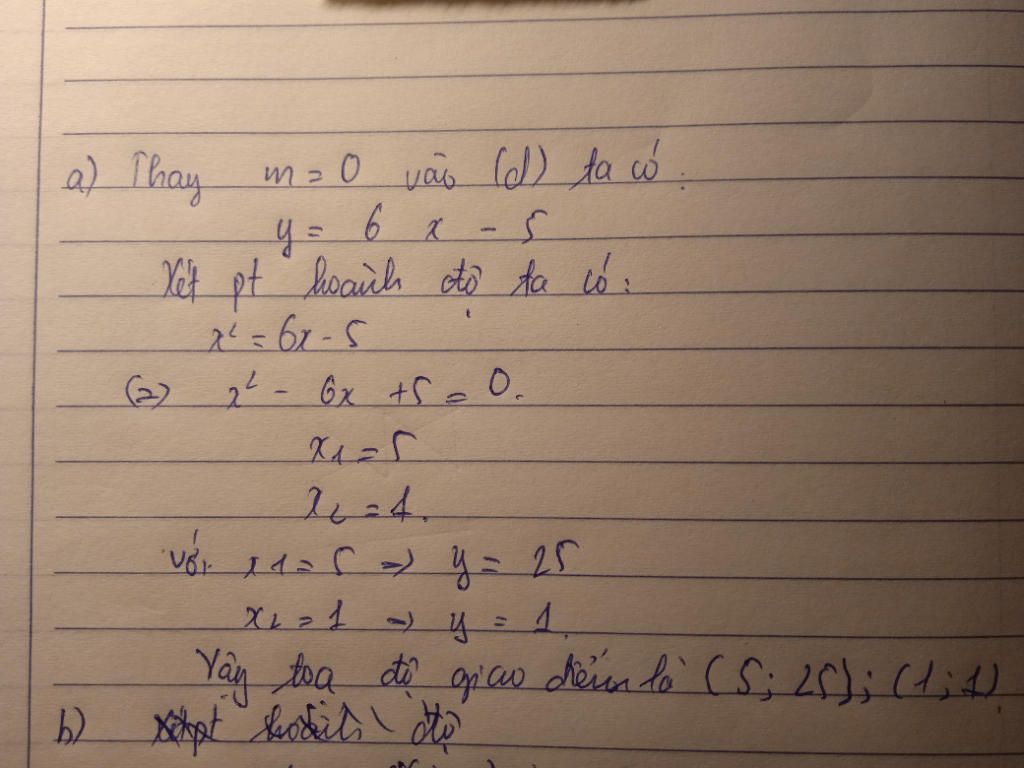 a) Thay m = 0 vào (d) ta có:
y = 6 x - 5
Xét pt hoành độ ta có:
x² = 6x - 5
(=) x² - 6x + 5 = 0.
x₁ = 5
x₂ = 1.
với x₁ = 5 => y = 25
x₂ = 1 -> y = 1.
Vậy toạ độ giao điểm là (5; 25); (1; 1)
b) Xét pt hoành độ